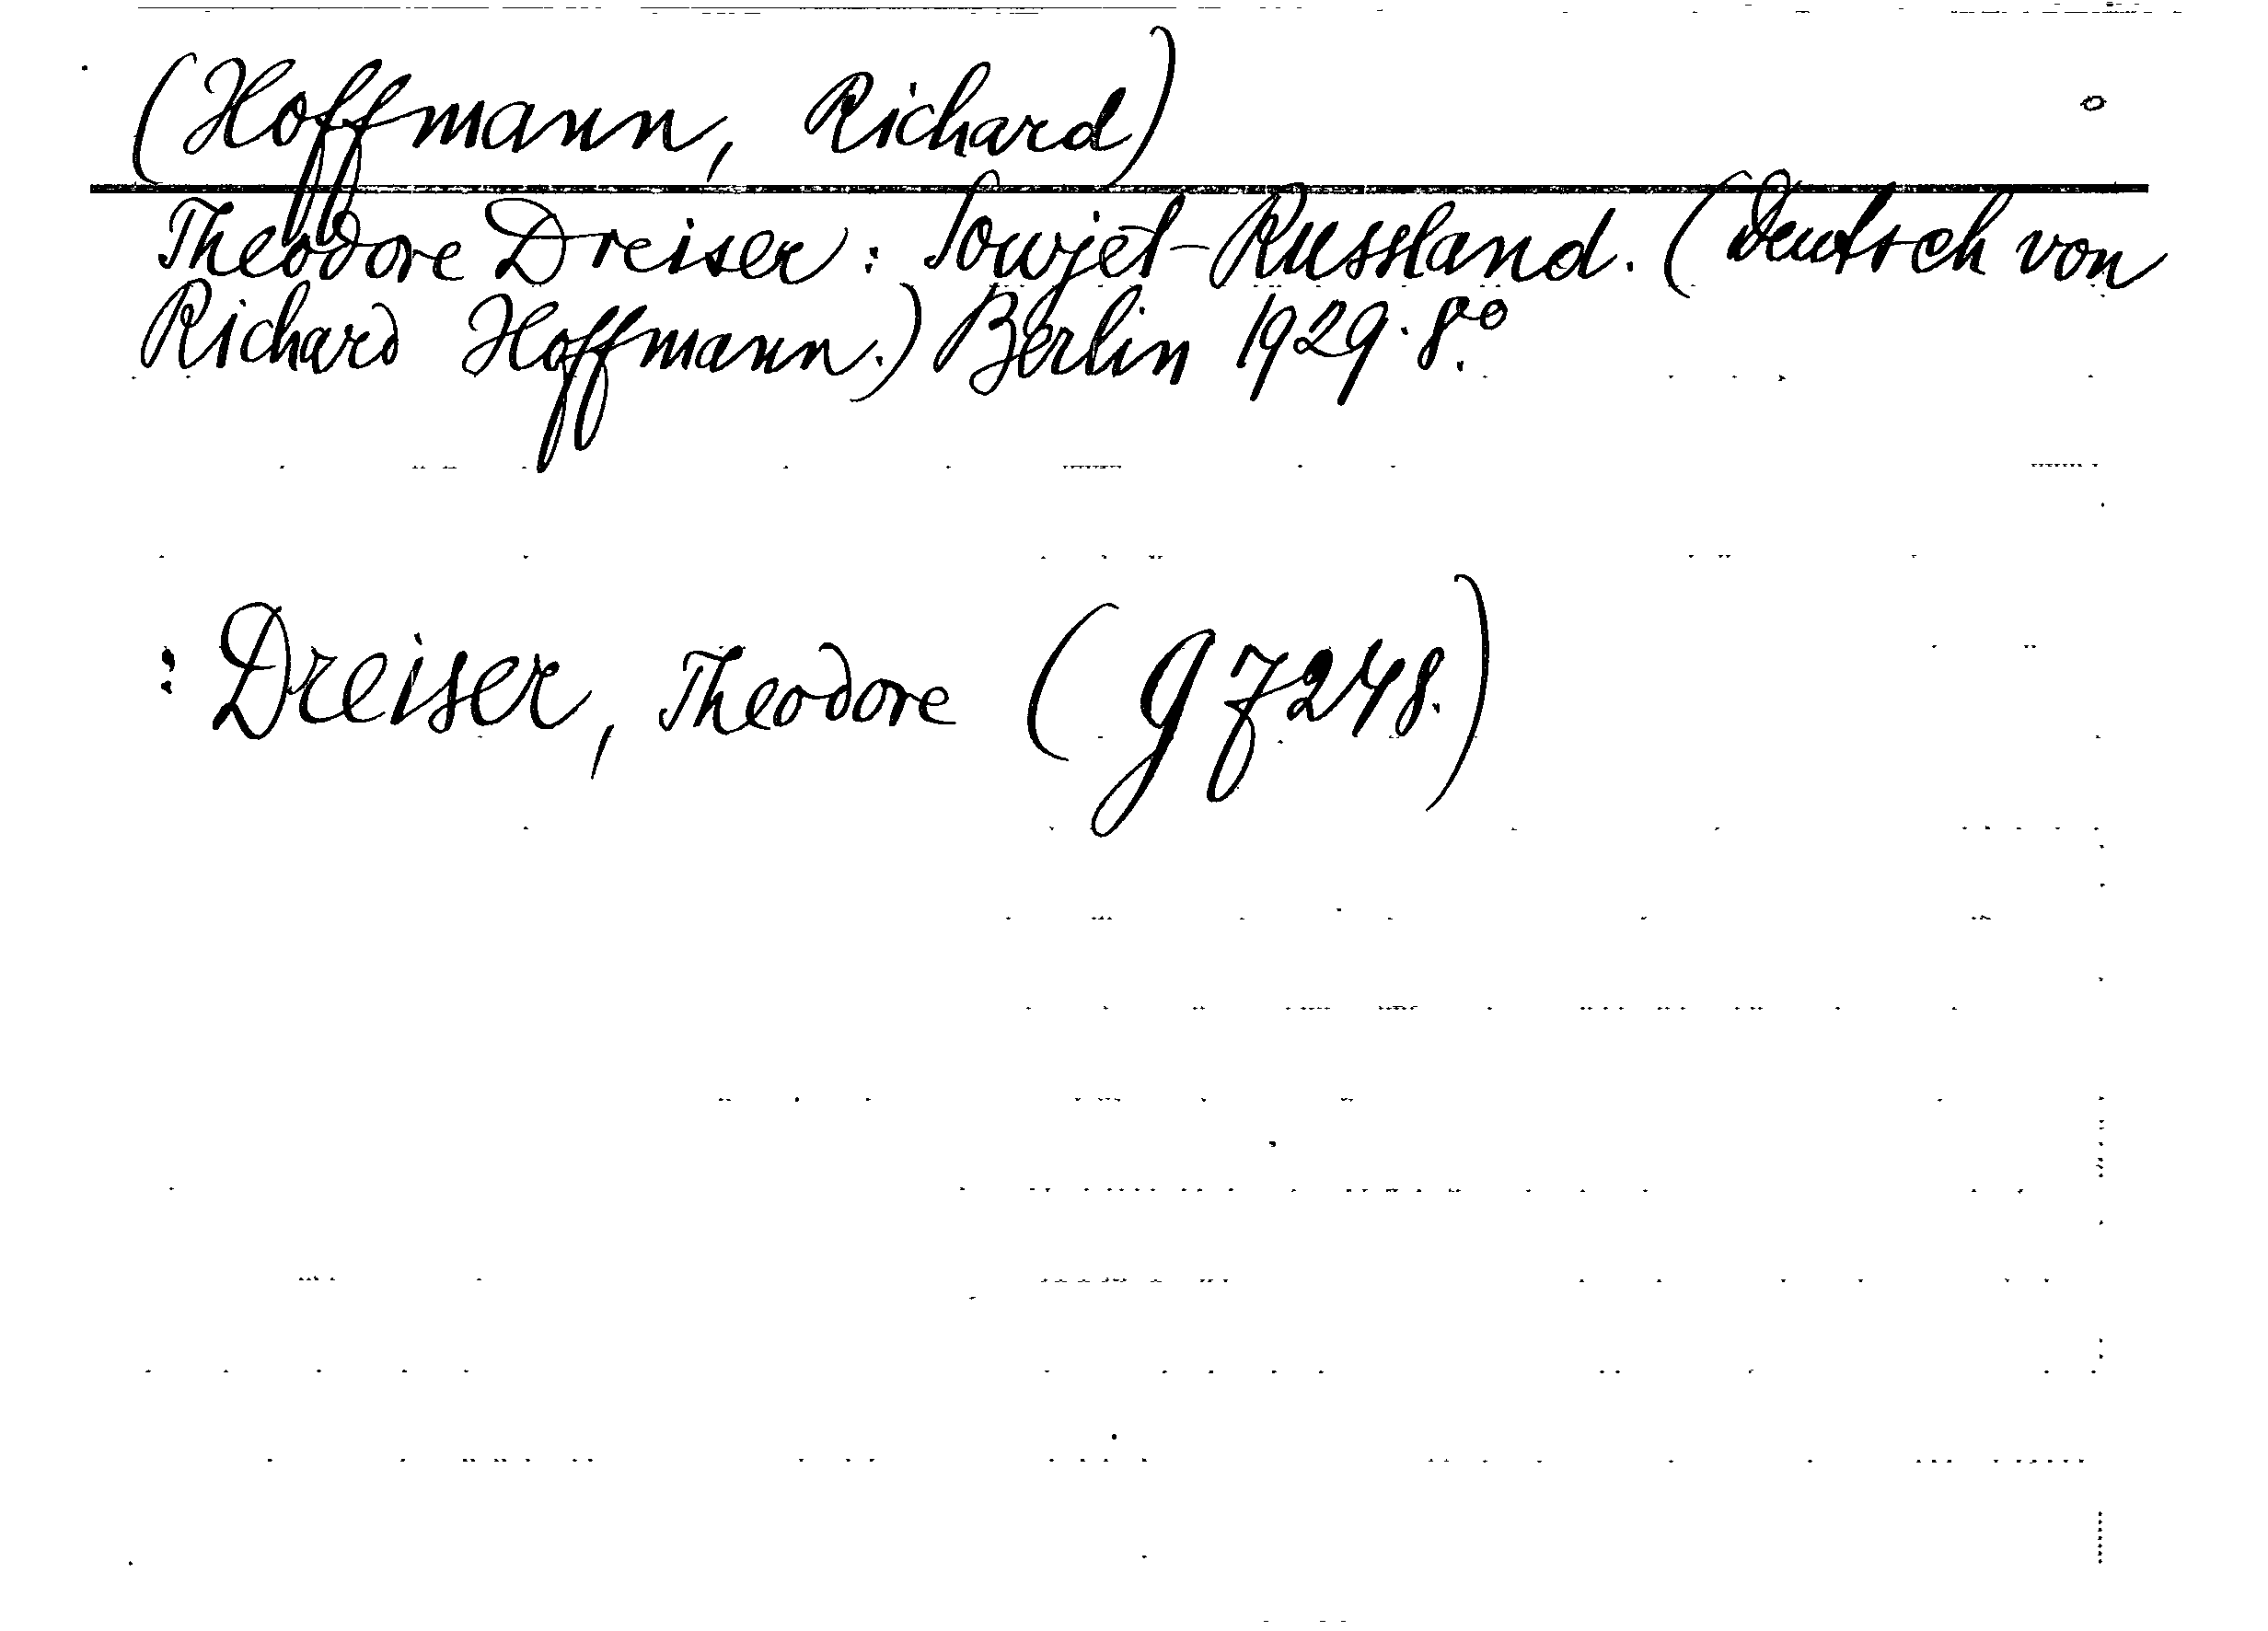 (Hoffmann, Richard)
Theodore Dreiser: Sowjet-Russland. (Deutsch von
Richard Hoffmann.) Berlin 1929. 8.°
: Dreiser, Theodore (g 7248.)